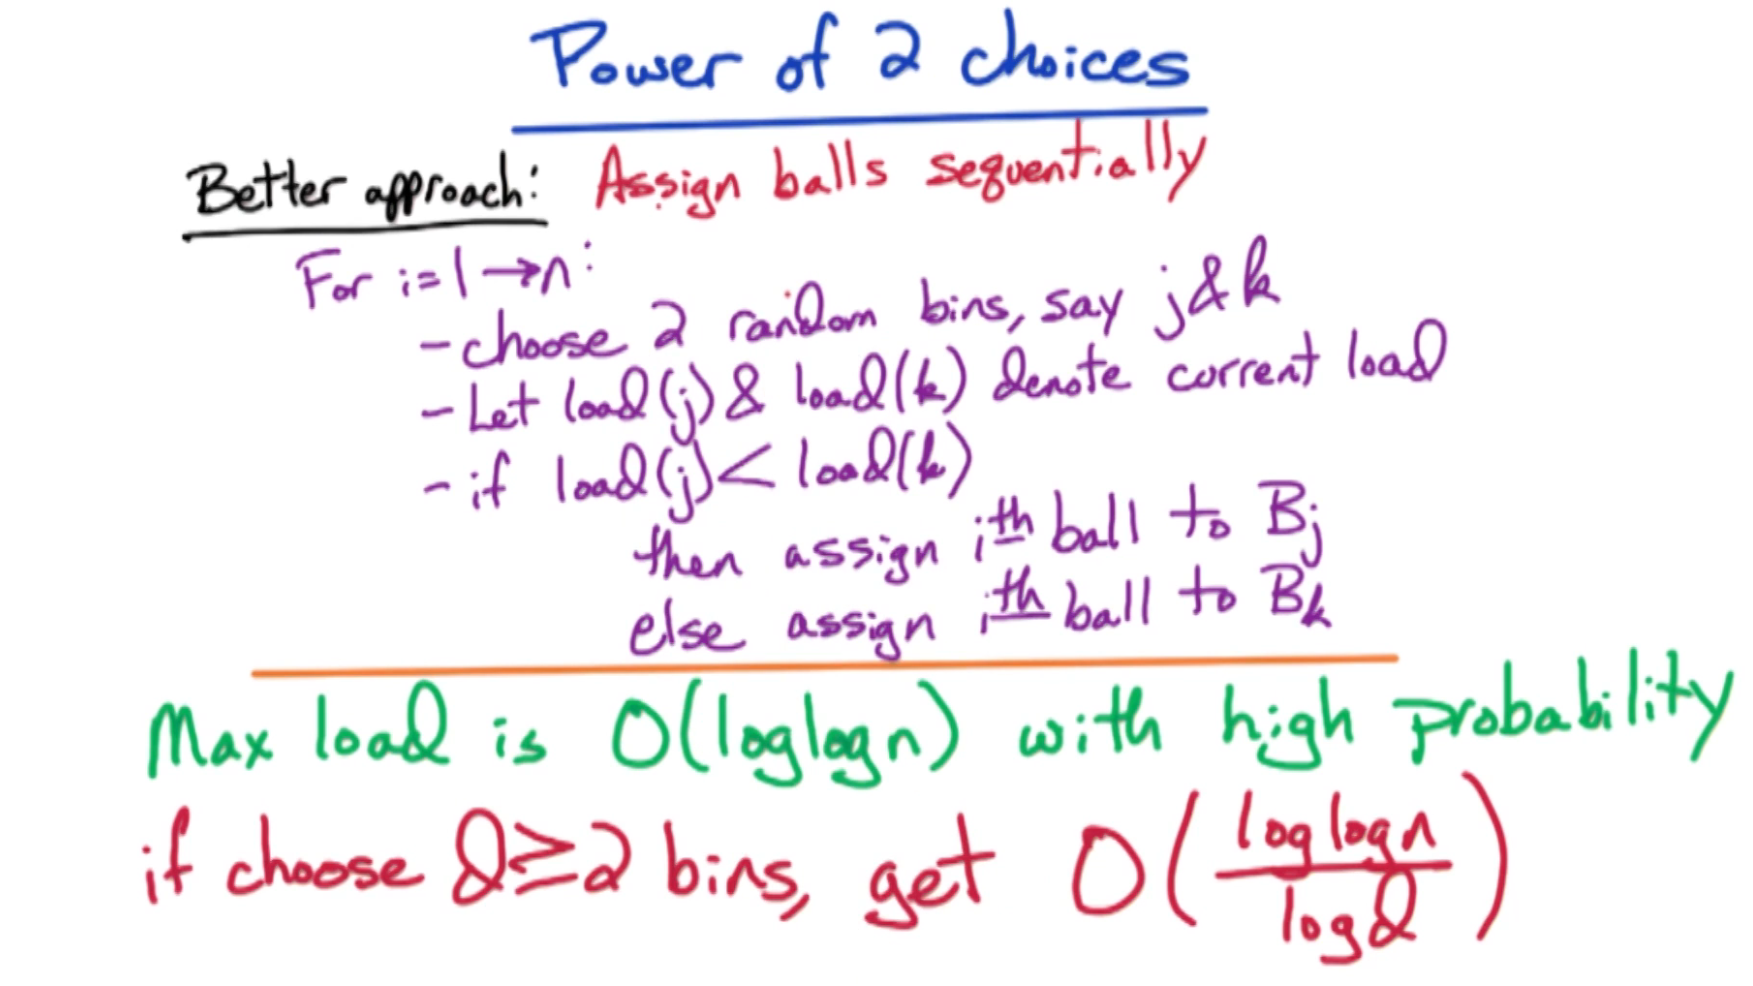 Power of 2 choices
Better approach: Assign balls sequentially
For i=1→n:
- choose 2 random bins, say j & k
- Let load(j) & load(k) denote current load
- if load(j) < load(k)
then assign i^th ball to B_j
else assign i^th ball to B_k
Max load is O(log log n) with high probability
if choose d≥2 bins, get O(log log n / log d)